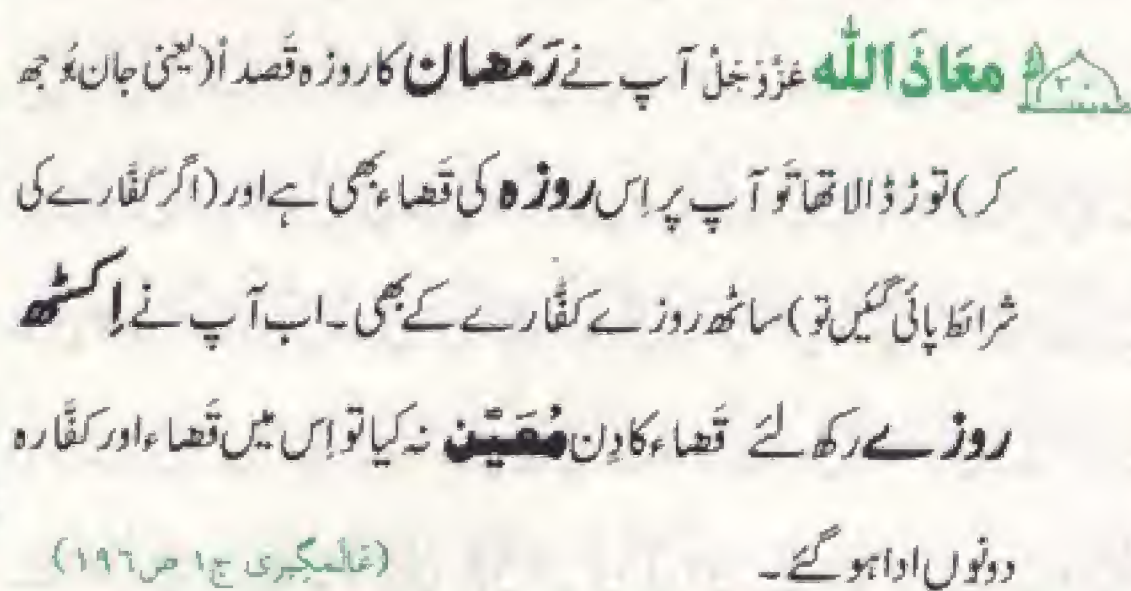 ۲۰ معَاذَاللّٰہ عَزَّوَجَلَّ آپ نے رَمَضان کا روزہ قَصداً (یعنی جان بُوجھ
کر) توڑ ڈالا تھا تَو آپ پر اِس روزہ کی قَضاء بھی ہے اور (اگر کَفَّارے کی
شرائط پائی گئیں تَو) ساٹھ روزے کفَّارے کے بھی۔ اب آپ نے اِکسٹھ
روزے رکھ لئے قَضاء کا دِن مُعَیَّن نہ کیا تو اِس میں قَضاء اور کفَّارہ
دونوں ادا ہوگئے۔ (عَالَمگِیری ج۱ ص۱۹٦)